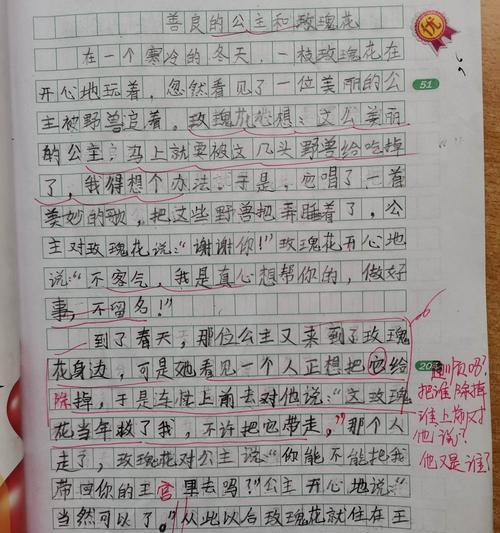 善良的公主和玫瑰花
优
在一个寒冷的冬天，一枝玫瑰花在
开心地玩着，忽然看见了一位美丽的公
51
主被野兽定着。玫瑰花想：这公美丽
的公主，马上就要被这几头野兽给吃掉
了，我得想个办法。于是，它唱了一首
美妙的歌，把这些野兽把弄睡着了，公
主对玫瑰花说：“谢谢你！”玫瑰花开心地
说：“不客气，我是真心想帮你的，做好
事，不留名！”
到了春天，那位公主又来到了玫瑰
花身边，可是她看见一个人正想把它给
除掉，于是连忙上前去对他说：“这玫瑰
花当年救了我，不许把它带走，”那个人
走了，玫瑰花对公主说：“你能不能把我
带回你的王宫里去吗？”公主开心地说：“
当然可以了。”从此以后玫瑰花就住在王
顺呢？
把谁除掉
谁上前对
他说？
他又是谁？